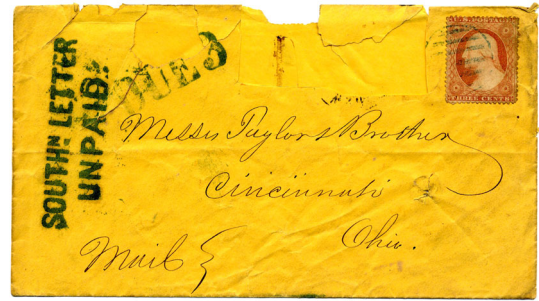 SOUTHN LETTER
UNPAID.
DUE 3
THREE CENTS
Messrs Taylor & Brother
Cincinnati
Ohio.
Mail